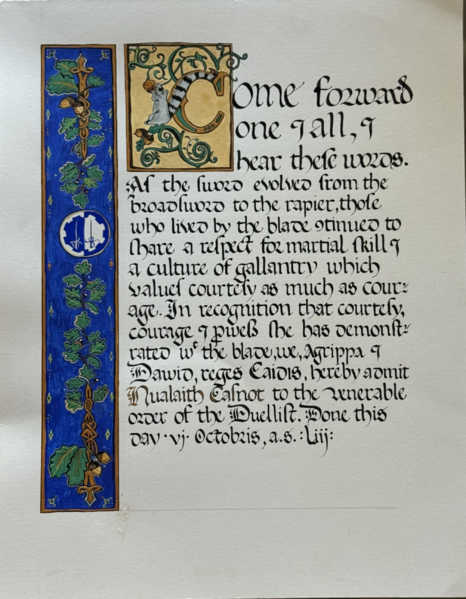 Come forward
one ⁊ all, ⁊
hear theſe words.
As the ſword evolved from the
broadsword to the rapier, thoſe
who lived by the blade ꝯtinued to
ſhare a reſpect for martial ſkill ⁊
a culture of gallantry which
valueſ courteſy as much as cour-
age. In recognition that courteſy,
courage ⁊ ꝓweſs ſhe has demonſt-
rated wᵗ the blade, we, Agrippa ⁊
Dawid, reges Caidis, hereby admit
Nualaith Caſnot to the venerable
order of the Duelliſt. Done this
day · vj · Octobris, a.s. : Liij: